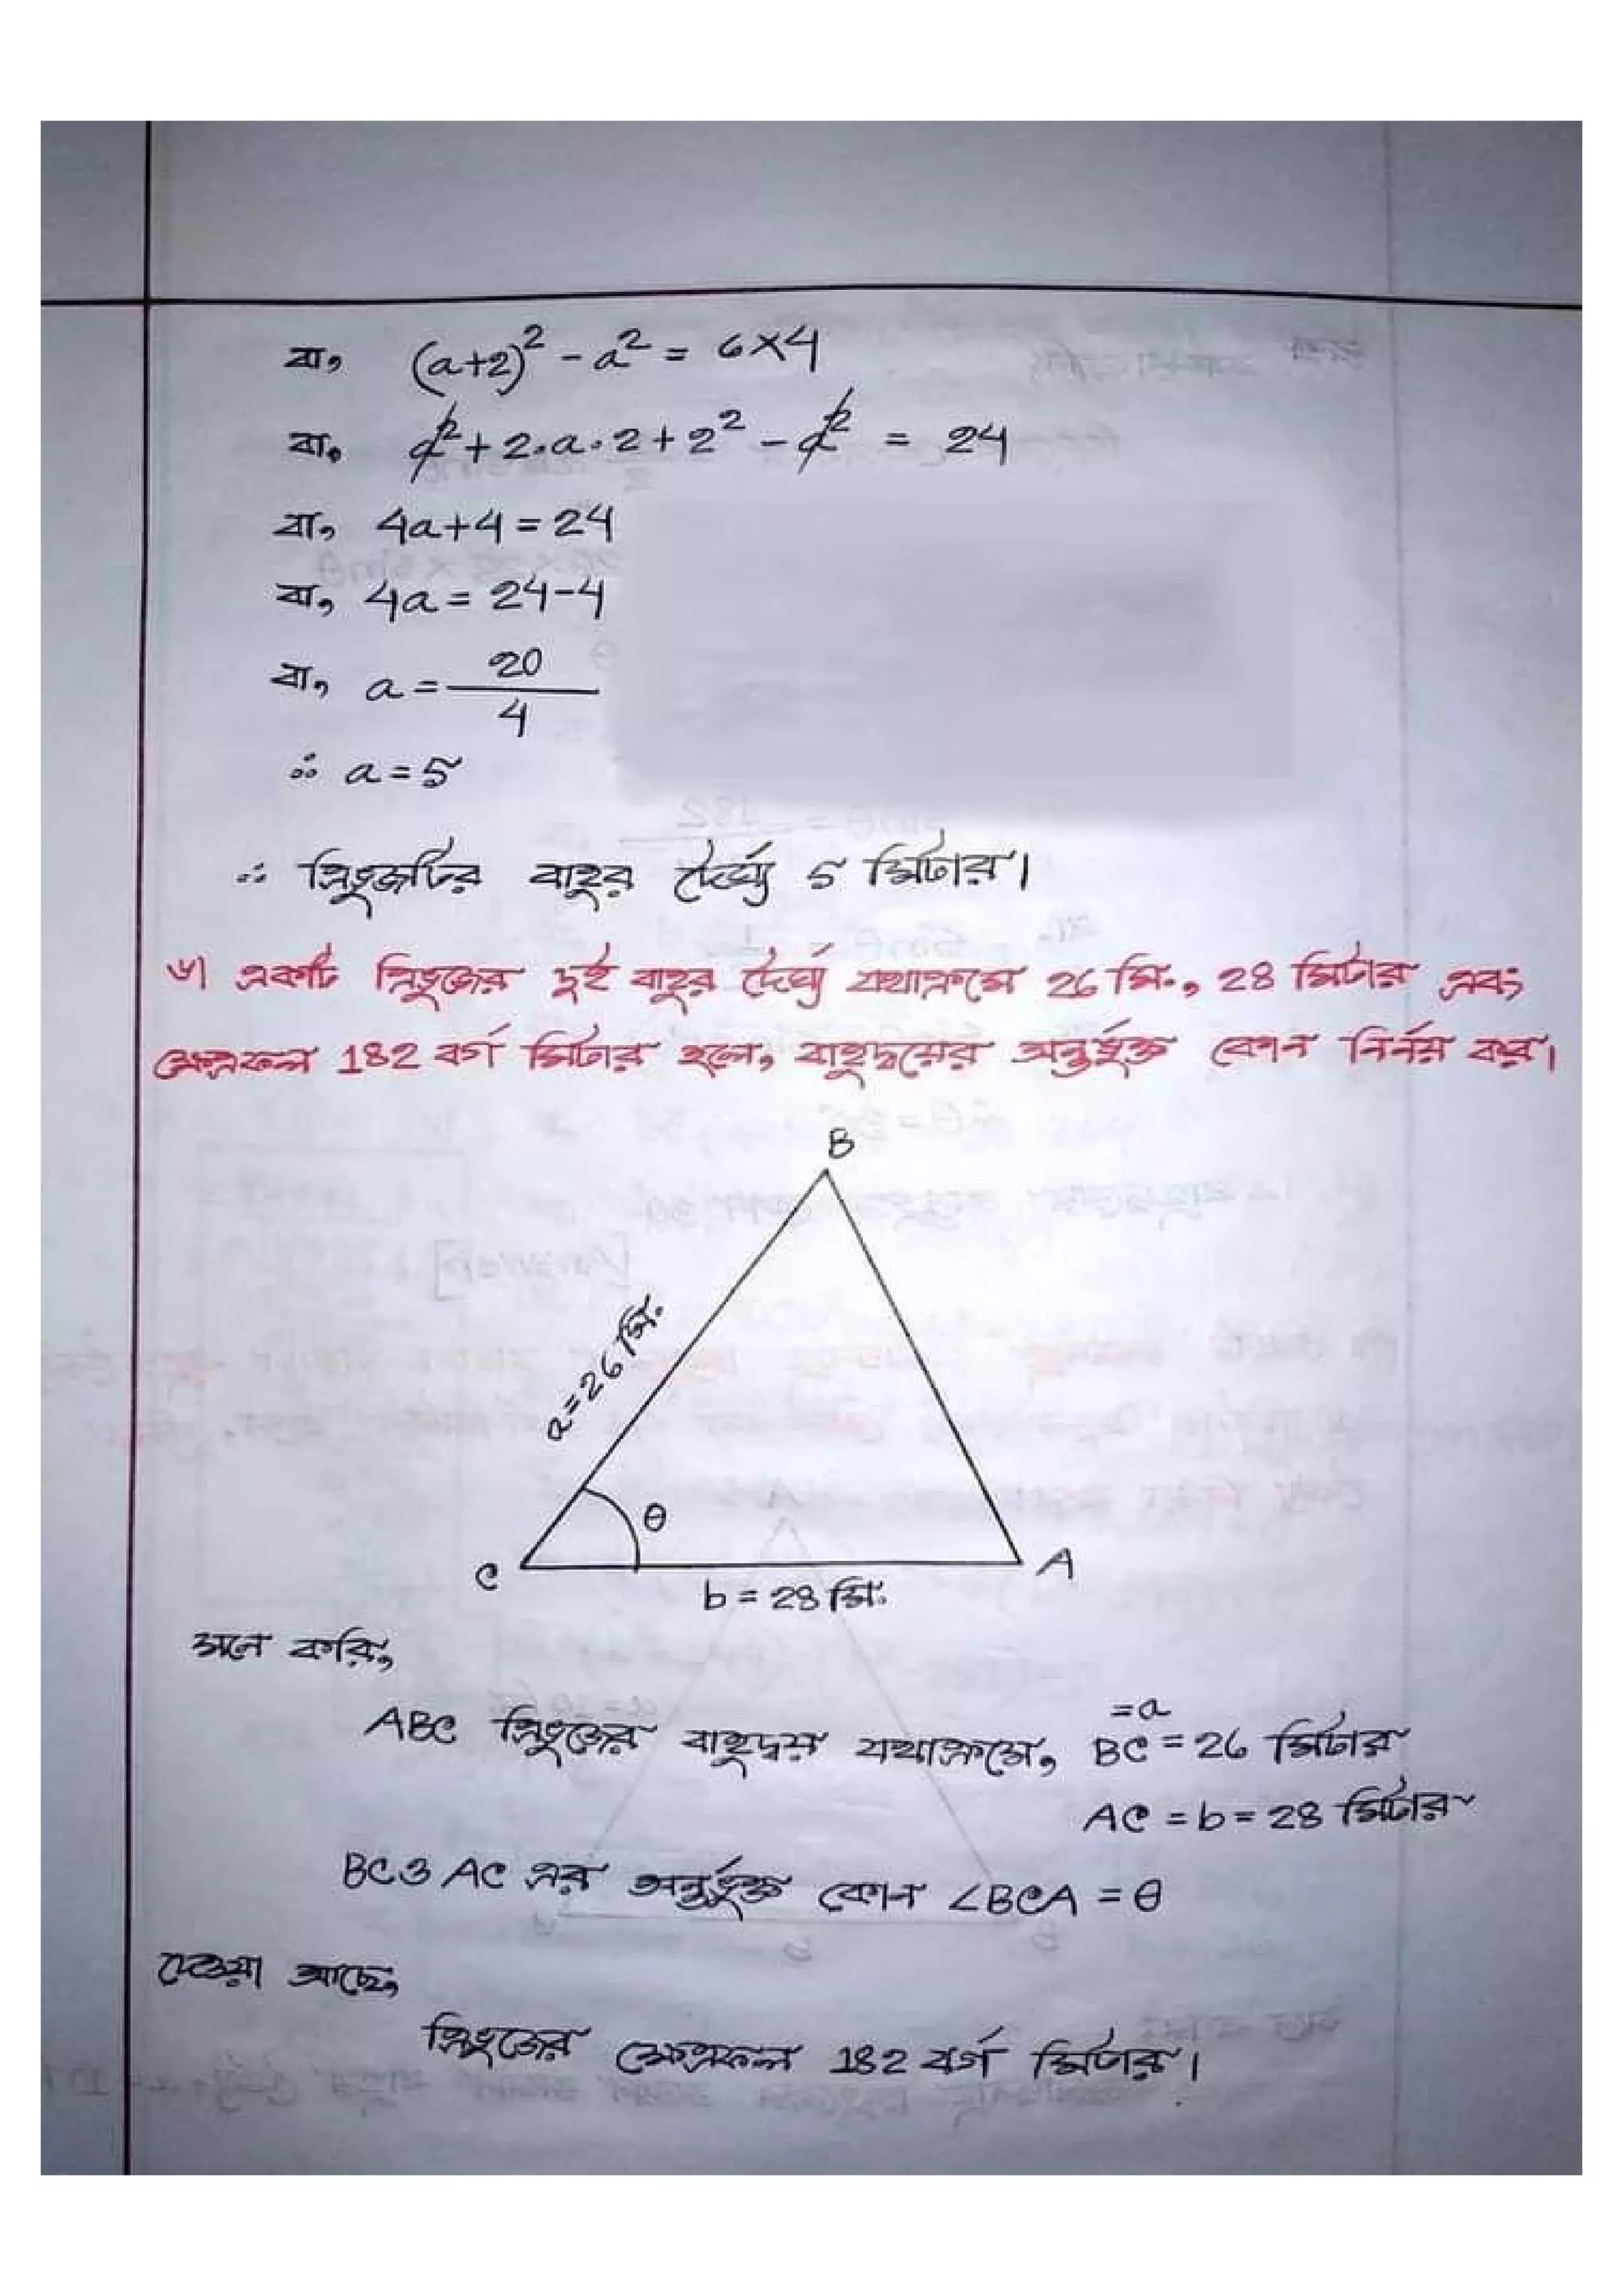 বা, (a+2)² - a² = 6×4
বা, a² + 2.a.2 + 2² - a² = 24
বা, 4a+4 = 24
বা, 4a = 24-4
বা, a = 20/4
∴ a = 5
∴ ত্রিভুজটির বাহুর দৈর্ঘ্য 5 মিটার।
৬। একটি ত্রিভুজের দুই বাহুর দৈর্ঘ্য যথাক্রমে 26 মি., 28 মিটার এবং
ক্ষেত্রফল 182 বর্গ মিটার হলে, বাহুদ্বয়ের অন্তর্ভুক্ত কোন নির্নয় কর।
B
a = 26 মি.
θ
C
A
b = 28 মি.
মনে করি,
ABC ত্রিভুজের বাহুদ্বয় যথাক্রমে, BC =a = 26 মিটার
AC = b = 28 মিটার
BC ও AC এর অন্তর্ভুক্ত কোন ∠BCA = θ
দেওয়া আছে,
ত্রিভুজের ক্ষেত্রফল 182 বর্গ মিটার।